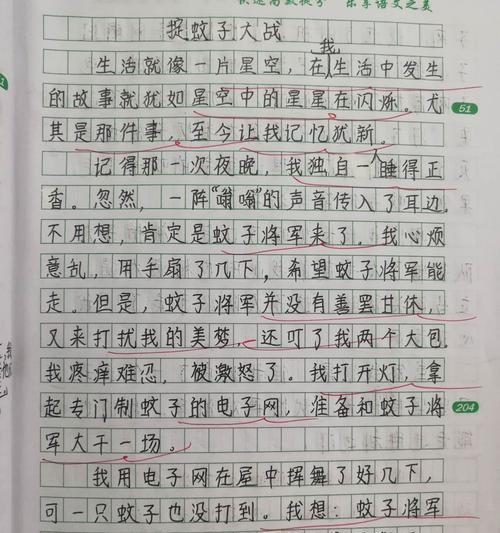 乐享语文之美
捉蚊子大战
生活就像一片星空,在我生活中发生
的故事就犹如星空中的星星在闪烁。尤
51
其是那件事,至今让我记忆犹新。
记得那一次夜晚,我独自一人睡得正
香。忽然,一阵“嗡嗡”的声音传入了耳边,
不用想,肯定是蚊子将军来了。我心烦
意乱,用手扇了几下,希望蚊子将军能
走。但是,蚊子将军并没有善罢甘休,
又来打扰我的美梦,还叮了我两个大包。
我疼痒难忍,被激怒了。我打开灯,拿
起专门制蚊子的电子网,准备和蚊子将
204
军大干一场。
我用电子网在屋中挥舞了好几下,
可一只蚊子也没打到。我想:蚊子将军